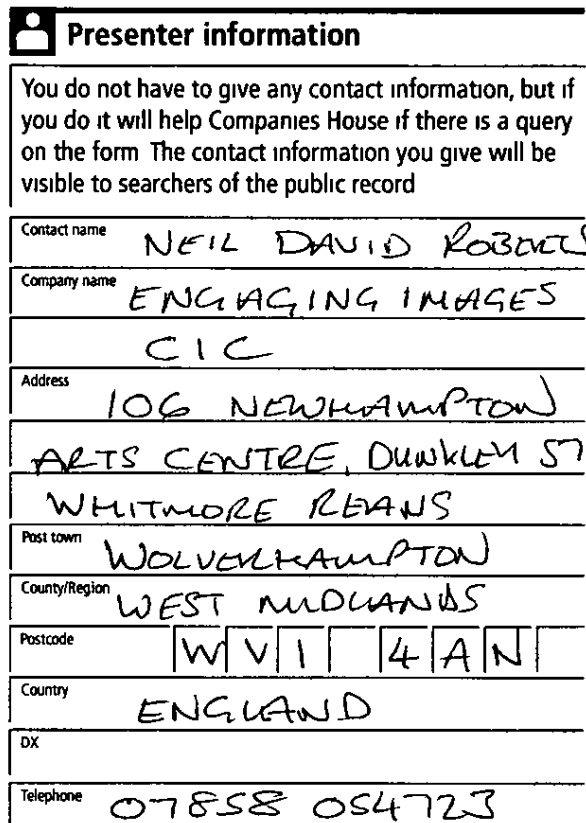 Presenter information
You do not have to give any contact information, but if
you do it will help Companies House if there is a query
on the form The contact information you give will be
visible to searchers of the public record
Contact name NEIL DAVID ROBERTS
Company name ENGAGING IMAGES
CIC
Address 106 NEWHAMPTON
ARTS CENTRE, DUNKLEY ST
WHITMORE REANS
Post town WOLVERHAMPTON
County/Region WEST MIDLANDS
Postcode WV1 4AN
Country ENGLAND
DX
Telephone 07858 054723